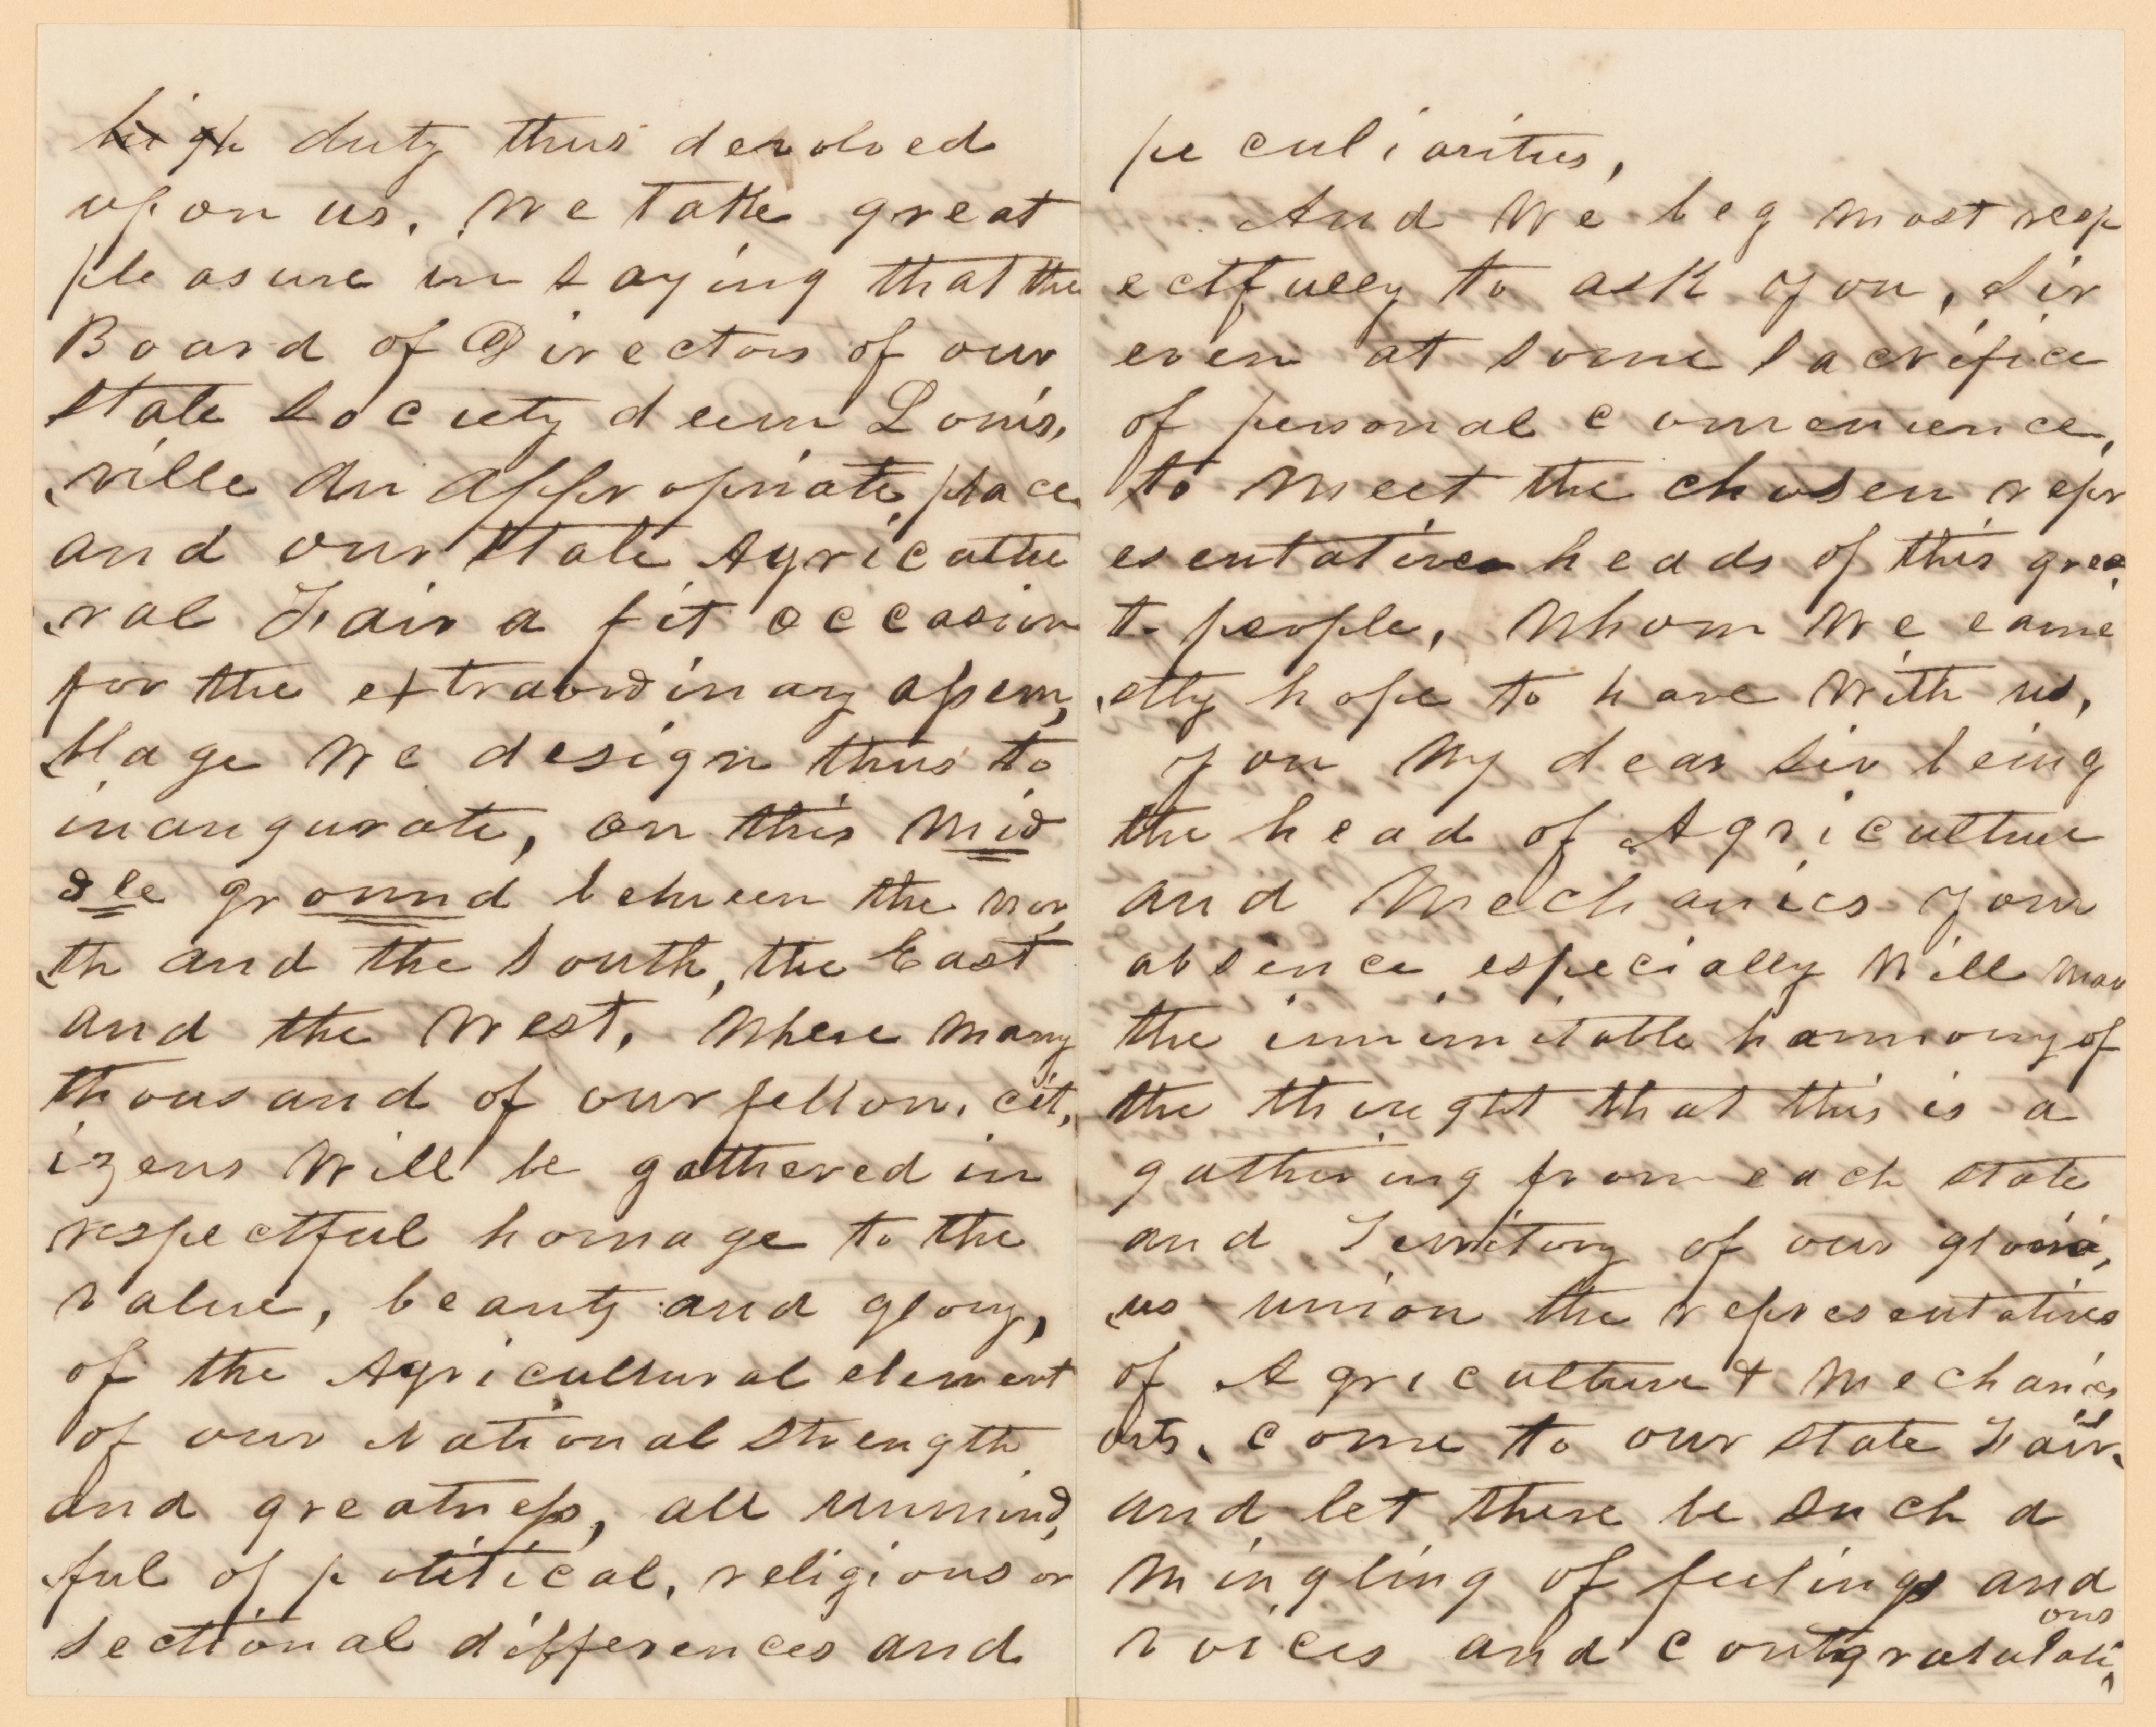 high duty thus devolved
upon us. We take great
pleasure in saying that the
Board of Directors of our
State Society deem Louis,
,ville an appropriate place
and our State Agricultu
,ral Fair a fit occasion
for the extraordinary assem,
,blage we design thus to
inaugurate, on this mid
dle ground between the Nor,
,th and the South, the East
and the West, Where many
thousand of our fellow, cit,
izens will be gathered in
respectful homage to the
value, beauty and glory,
of the Agricultural element
of our National Strength
and greatness, all unmind,
,ful of political, religious or
sectional differences and
peculiarities,
And we beg most resp
ectfully to ask you, Sir
even at some sacrifice
of personal convenience,
to meet the chosen repr
esentative heads of this grea
t people, whom we earne
,stly hope to have with us,
you my dear sir being
the head of Agriculture
and Mechanics your
absence especially will mar
the inimitable harmony of
the thought that this is a
gathering from each state
and Territory of our glorio,
,us union the representatives
of Agriculture & Mechanics
arts, come to our State Fair,
and let there be such a
mingling of feelings and
voices and congratulati,
ons